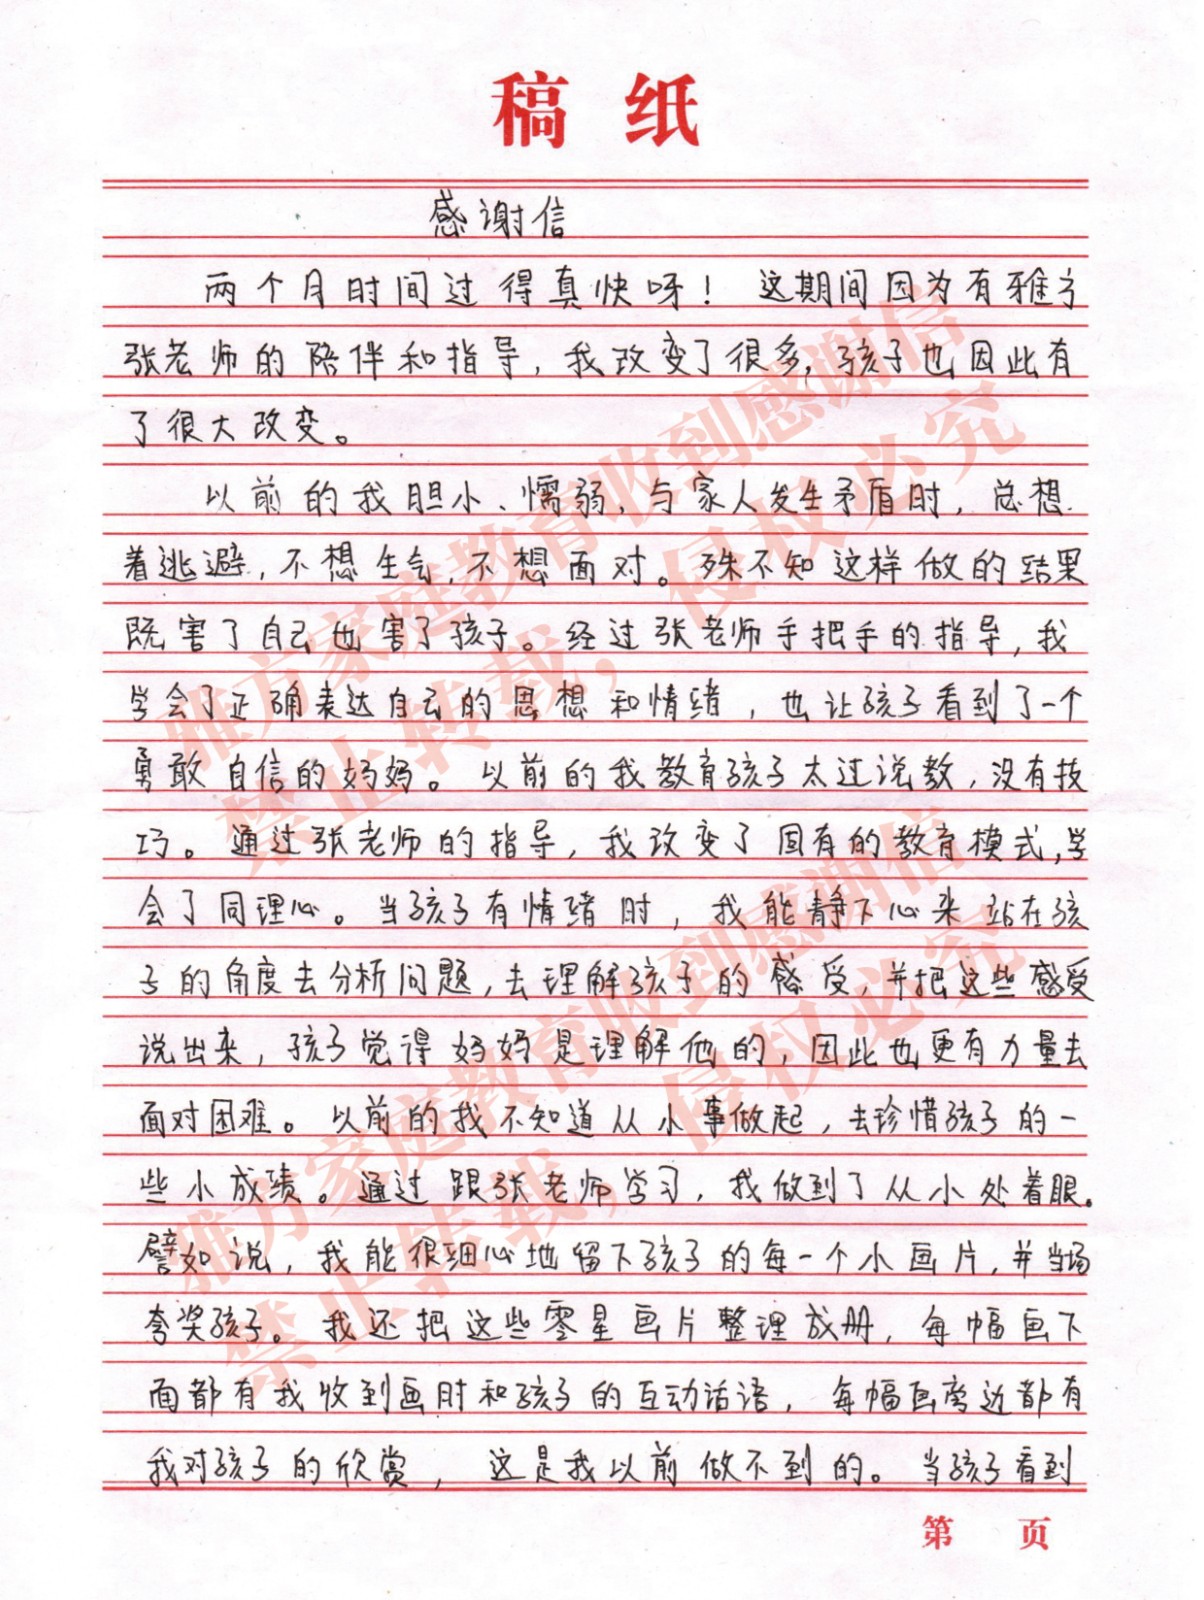 稿纸
感谢信
两个月时间过得真快呀！这期间因为有雅方
张老师的陪伴和指导，我改变了很多，孩子也因此有
了很大改变。
以前的我胆小、懦弱，与家人发生矛盾时，总想
着逃避，不想生气，不想面对。殊不知这样做的结果
既害了自己也害了孩子。经过张老师手把手的指导，我
学会了正确表达自己的思想和情绪，也让孩子看到了一个
勇敢自信的妈妈。以前的我教育孩子太过说教，没有技
巧。通过张老师的指导，我改变了固有的教育模式，学
会了同理心。当孩子有情绪时，我能静下心来站在孩
子的角度去分析问题，去理解孩子的感受，并把这些感受
说出来，孩子觉得妈妈是理解他的，因此也更有力量去
面对困难。以前的我不知道从小事做起，去珍惜孩子的一
些小成绩。通过跟张老师学习，我做到了从小处着眼。
譬如说，我能很细心地留下孩子的每一个小画片，并当场
夸奖孩子。我还把这些零星画片整理成册，每幅画下
面都有我收到画时和孩子的互动话语，每幅画旁边都有
我对孩子的欣赏，这是我以前做不到的。当孩子看到
第 页
雅方家庭教育收到感谢信
禁止转载，侵权必究
雅方家庭教育收到感谢信
禁止转载，侵权必究